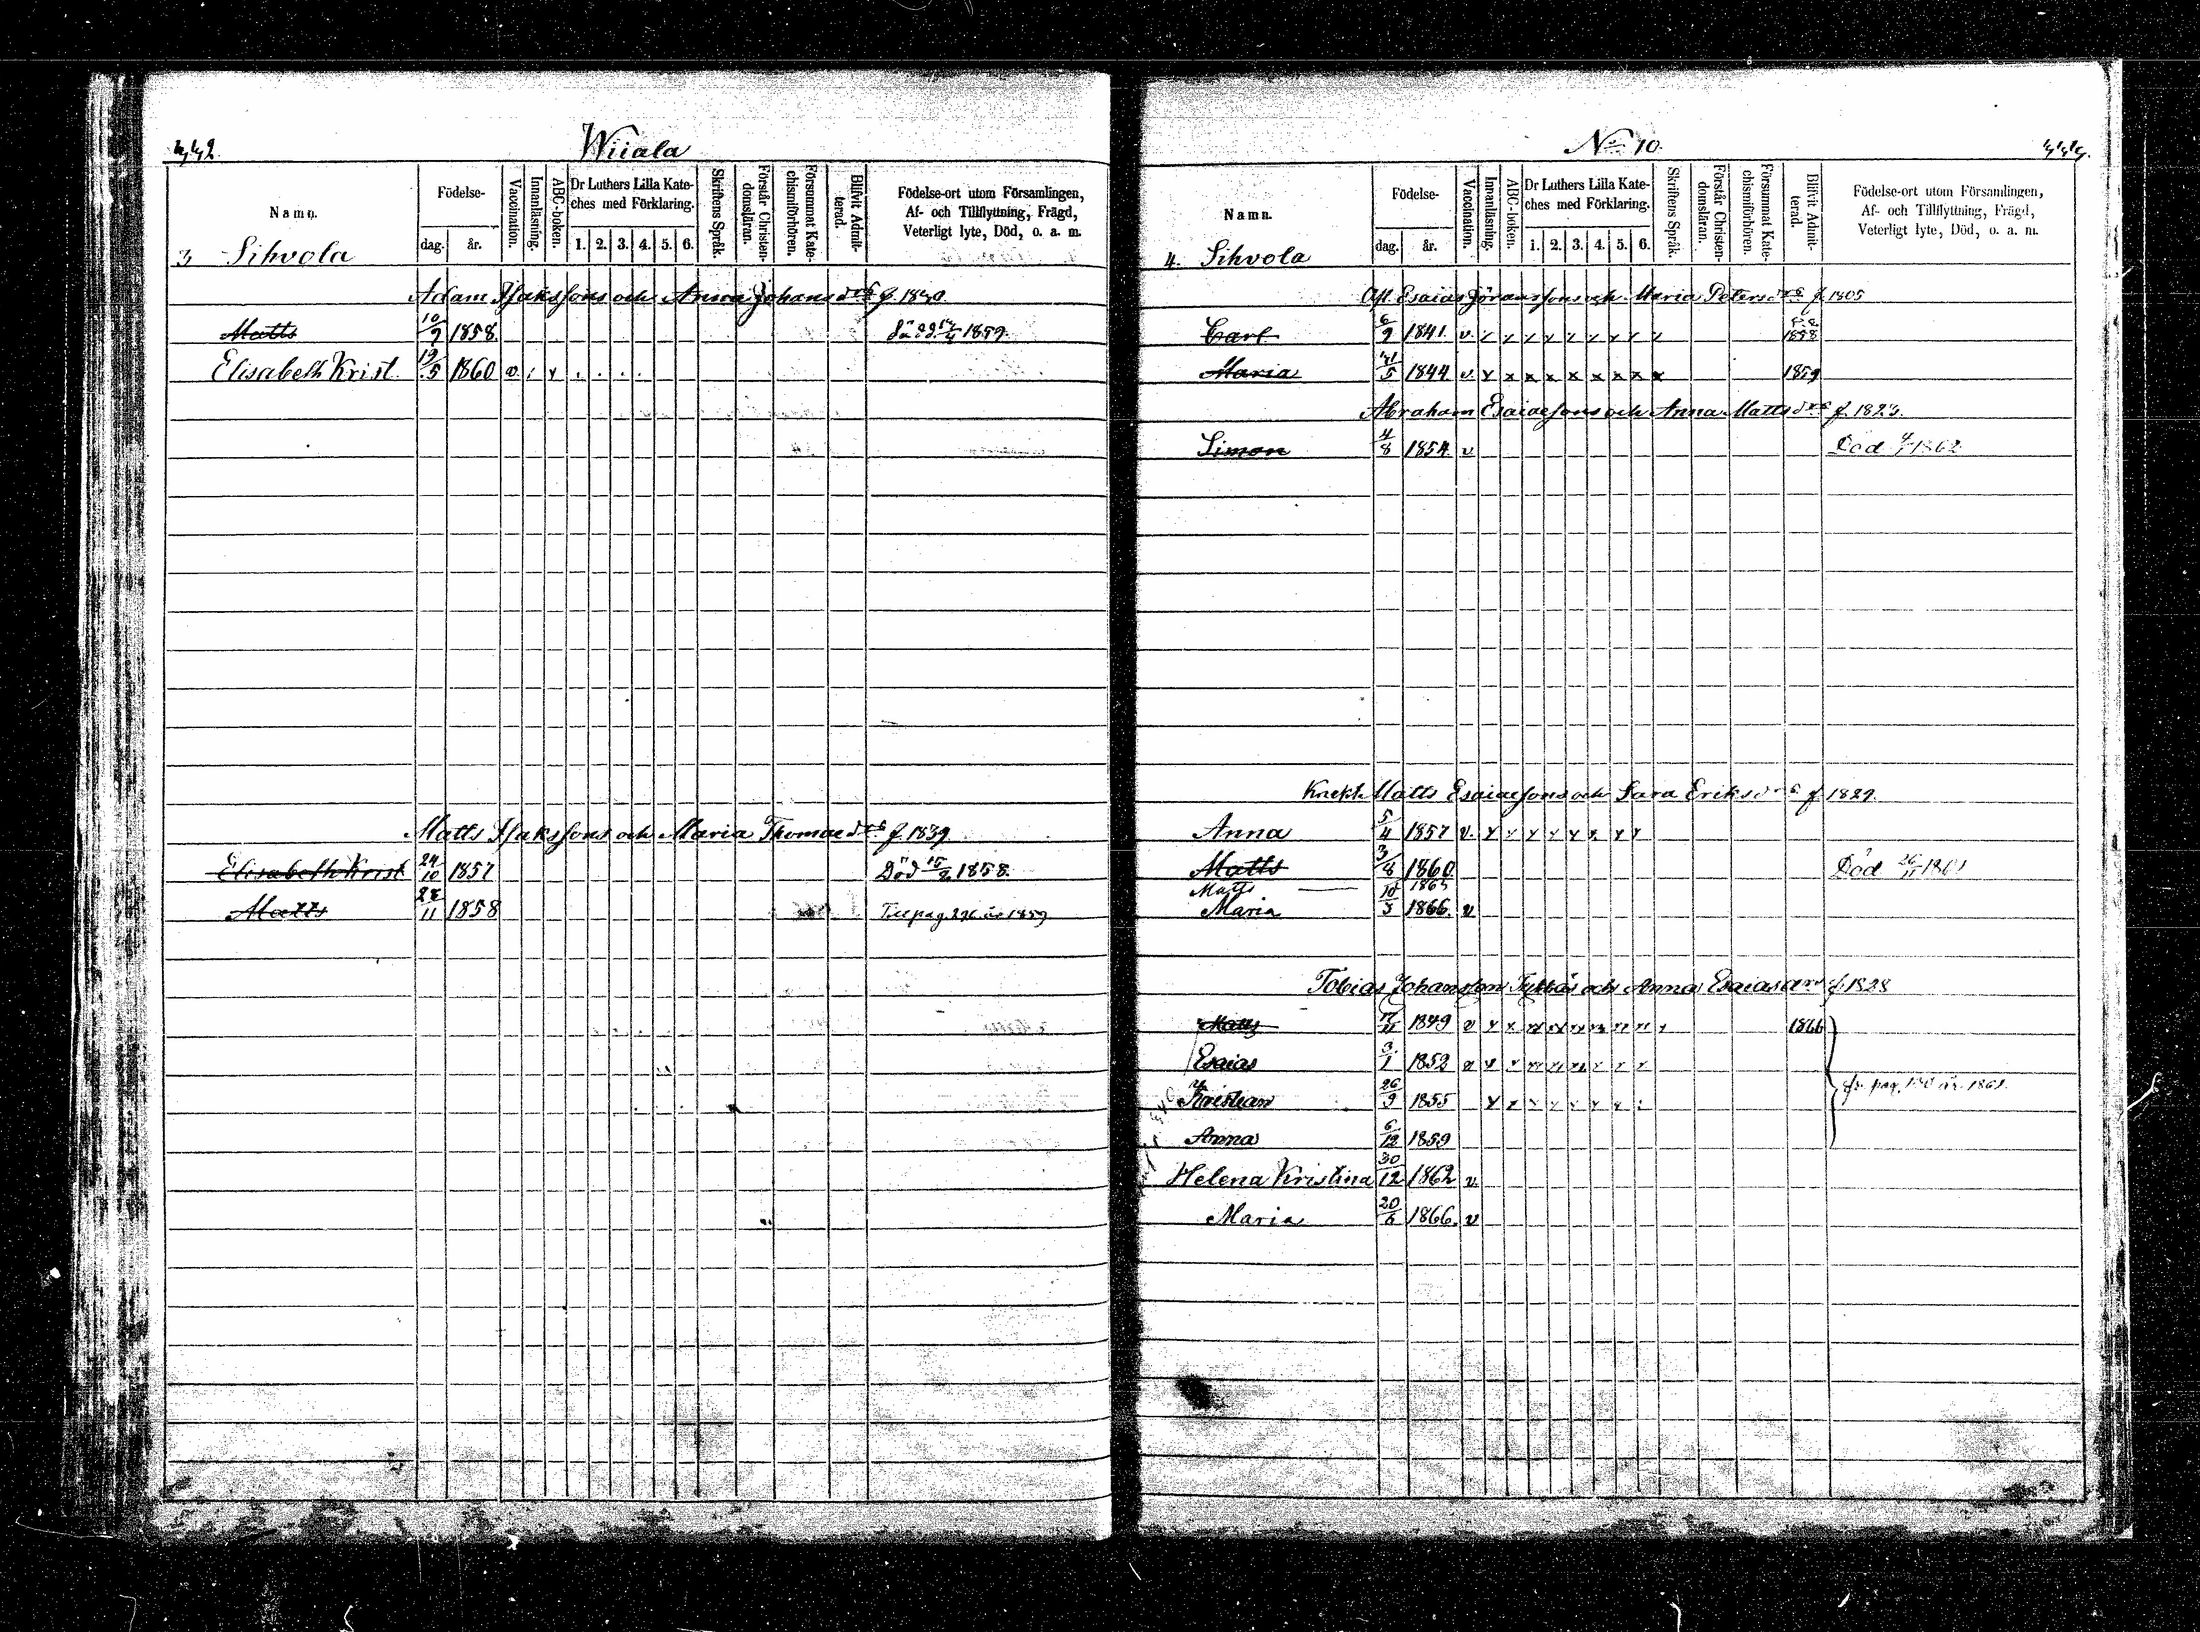 Wiiala
Namn.
Födelse-
dag.
år.
Vaccination.
Innanläsning.
ABC-boken.
Dr Luthers Lilla Kate-
ches med Förklaring.
1. 2. 3. 4. 5. 6.
Skriftens Språk.
Förstår Christen-
domsläran.
Försummat Kate-
chismiförhören.
Blifvit Admit-
terad.
Födelse-ort utom Församlingen,
Af- och Tillflyttning, Frägd,
Veterligt lyte, Död, o. a. m.
3 Sihvola
Adam Isakssons och Anna Johansdrs f. 1830.
Matts 10/9 1858. 1859.
Elisabeth Krist. 19/5 1860 v
Matts Isakssons och Maria Thomaedrs f. 1839
Elisabeth Krist 24/10 1857 Död 15/2 1858.
Matts 28/11 1858 Till pag. 296 år 1859
No 10.
Namn.
Födelse-
dag.
år.
Vaccination.
Innanläsning.
ABC-boken.
Dr Luthers Lilla Kate-
ches med Förklaring.
1. 2. 3. 4. 5. 6.
Skriftens Språk.
Förstår Christen-
domsläran.
Försummat Kate-
chismiförhören.
Blifvit Admit-
terad.
Födelse-ort utom Församlingen,
Af- och Tillflyttning, Frägd,
Veterligt lyte, Död, o. a. m.
4. Sihvola
Afl. Esaias Göranssons och Maria Petersdrs f. 1805
Carl 6/9 1841. v. x x x x x x x x x 1858
Maria 5 1844 v. x x x x x x x x x 1859
Abraham Esaiaesons och Anna Mattsdrs f. 1823.
Simon 4/8 1854 v Död 1862
Knekt. Matts Esaiaesons och Sara Eriksdrs f 1829.
Anna 5/4 1857 v. x x x x x x x x
Matts 3/8 1860. Död 26/11 1861
Matts 1863
Maria 10/3 1866. v
Tobias Johansson och Anna Esaiasdr f 1828
Matts 17/11 1849 v x x 1866
Esaias 3/1 1853 v x x
Kristian 26/9 1855 x x x x x x x
fr. pag. år 1861
Anna 6/12 1859
Helena Kristina 30/12 1862 v.
Maria 20/6 1866. v